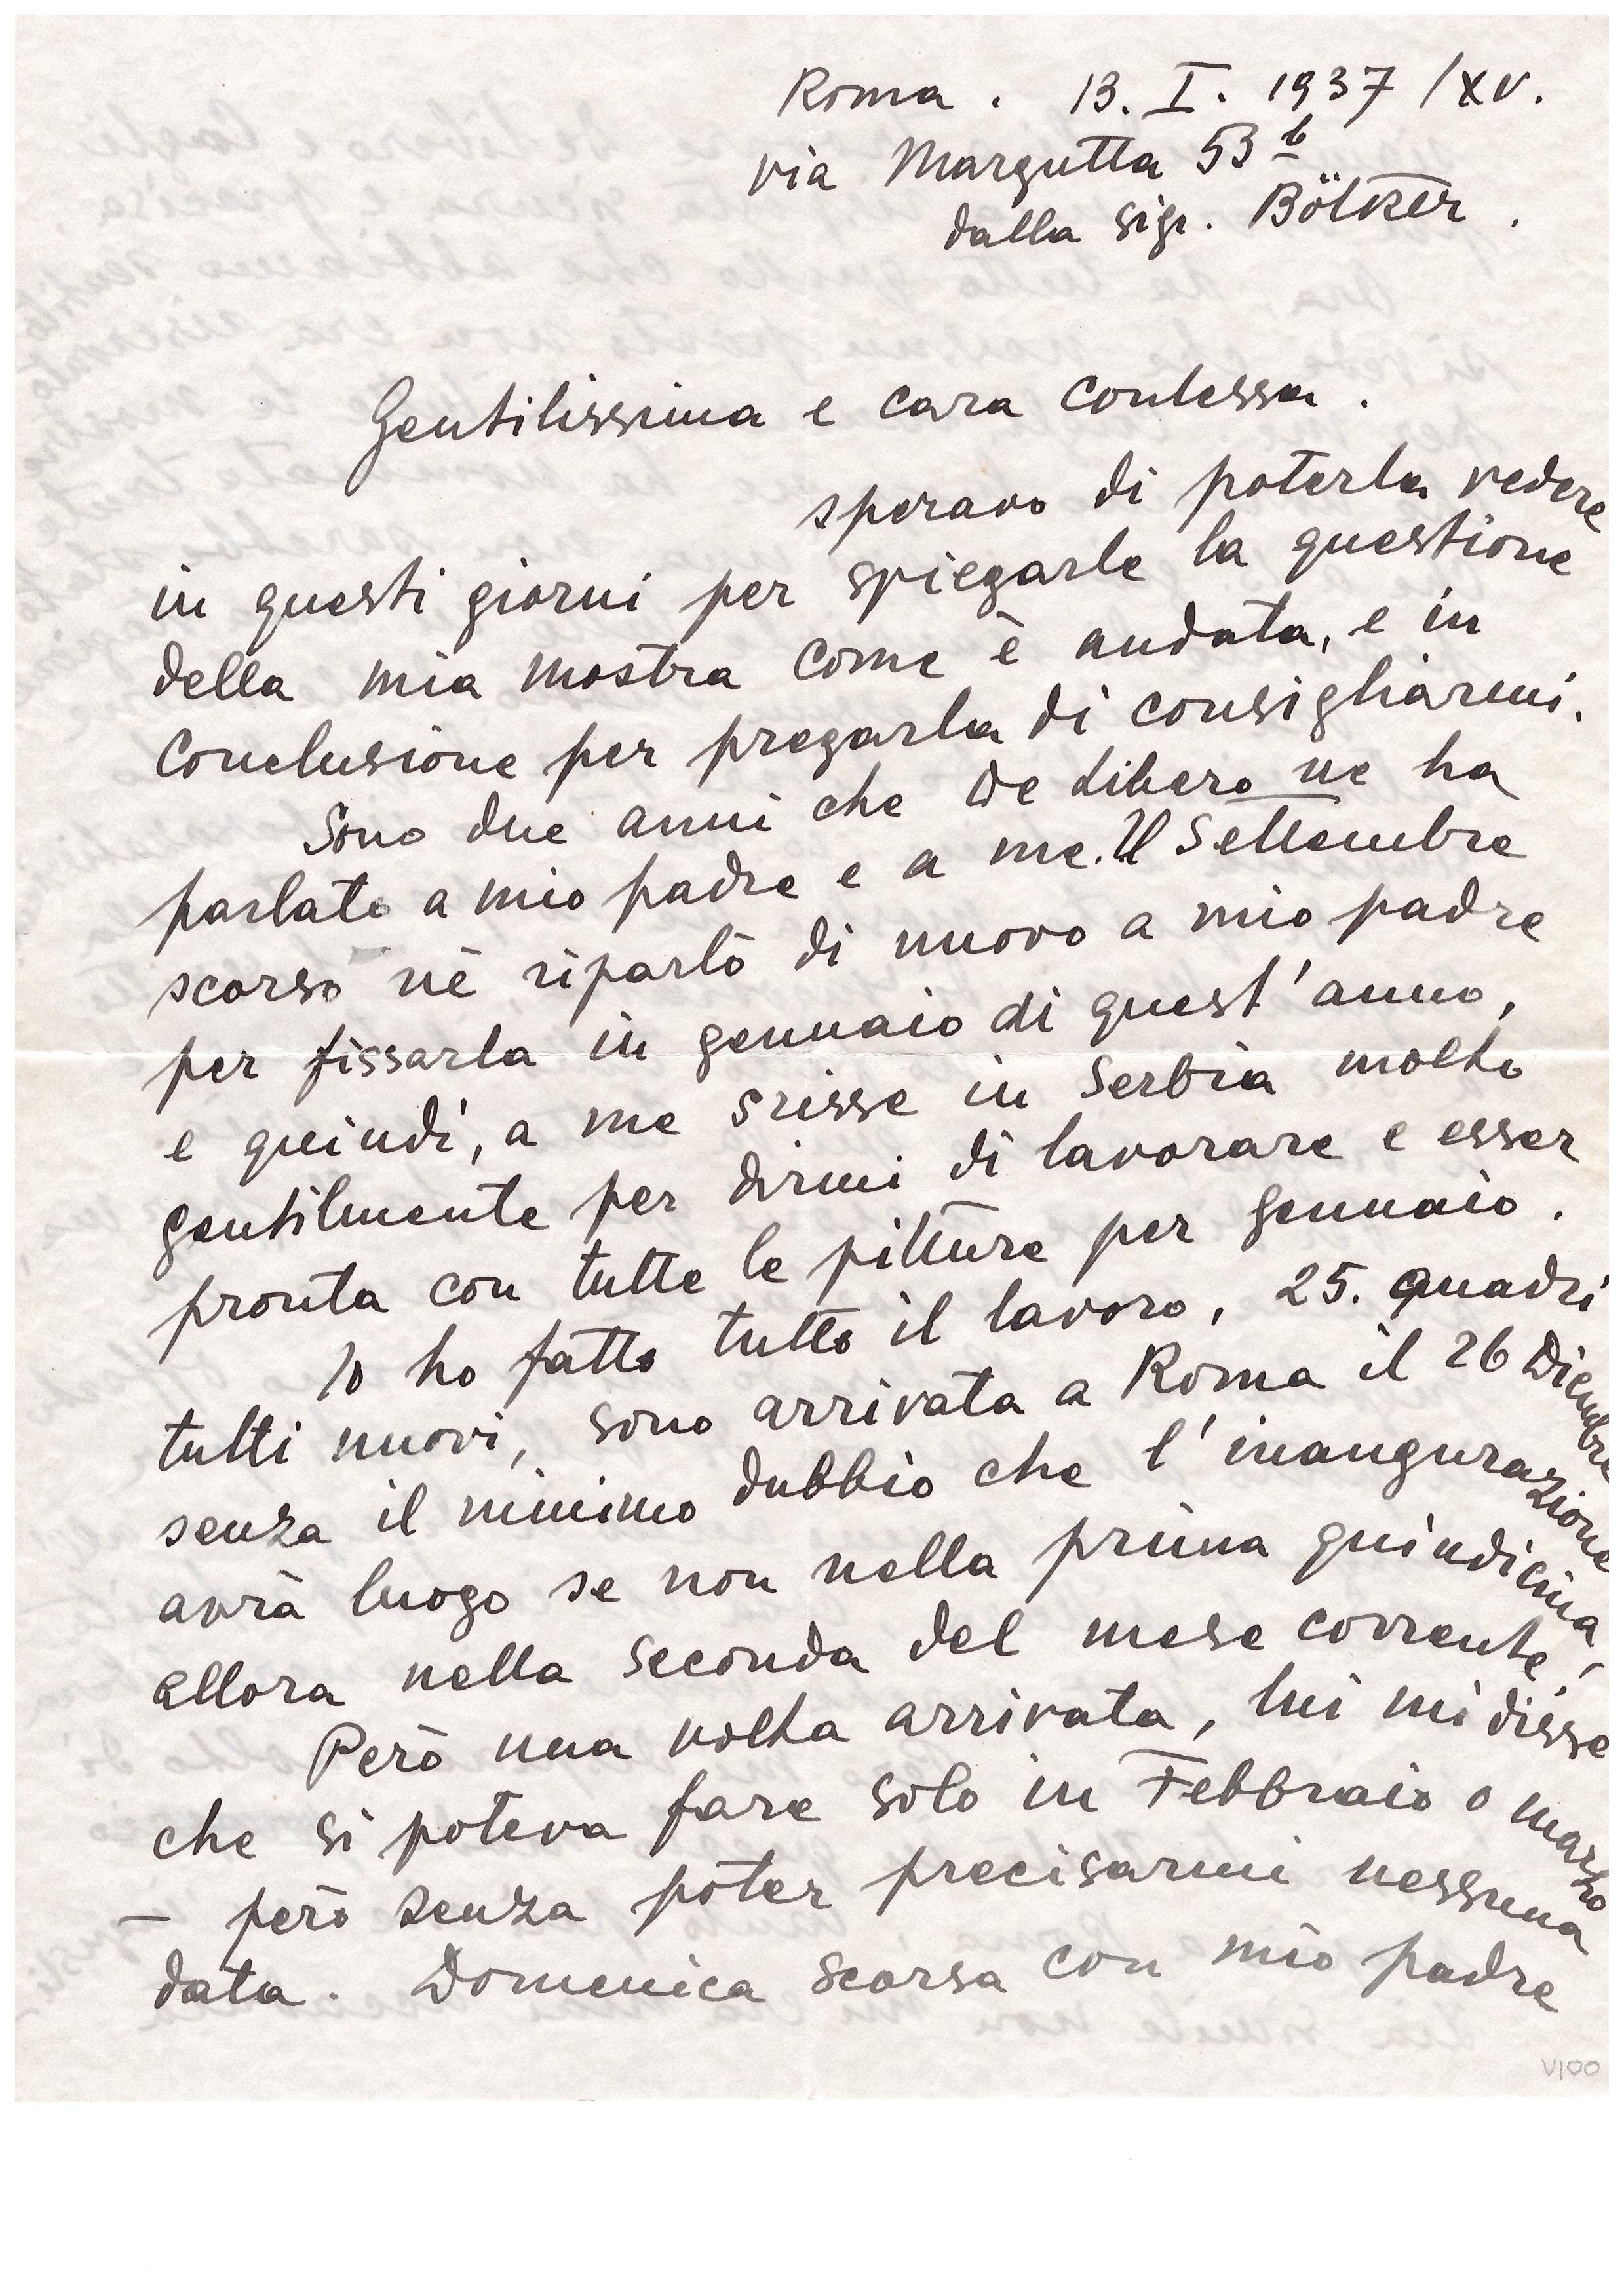 Roma . 13. I. 1937 /XV.
via Margutta 53 b
dalla sigr. Bölker .
Gentilissima e cara Contessa .
speravo di poterla vedere
in questi giorni per spiegarle la questione
della mia mostra come è andata, e in
conclusione per pregarla di consigliarmi.
Sono due anni che De Libero ne ha
parlato a mio padre e a me. Il Settembre
scorso nè riparlò di nuovo a mio padre
per fissarla in gennaio di quest'anno,
e quindi, a me srisse in Serbia molto
gentilmente per dirmi di lavorare e esser
pronta con tutte le pitture per gennaio .
Io ho fatto tutto il lavoro, 25. quadri
tutti nuovi, sono arrivata a Roma il 26 Dicembre
senza il minimo dubbio che l'inaugurazione
avrà luogo se non nella prima quindicina,
allora nella seconda del mese corrente,
Però una volta arrivata, lui mi disse
che si poteva fare solo in Febbraio o marzo
– però senza poter precisarmi nessuna
data. Domenica scorsa con mio padre
V100